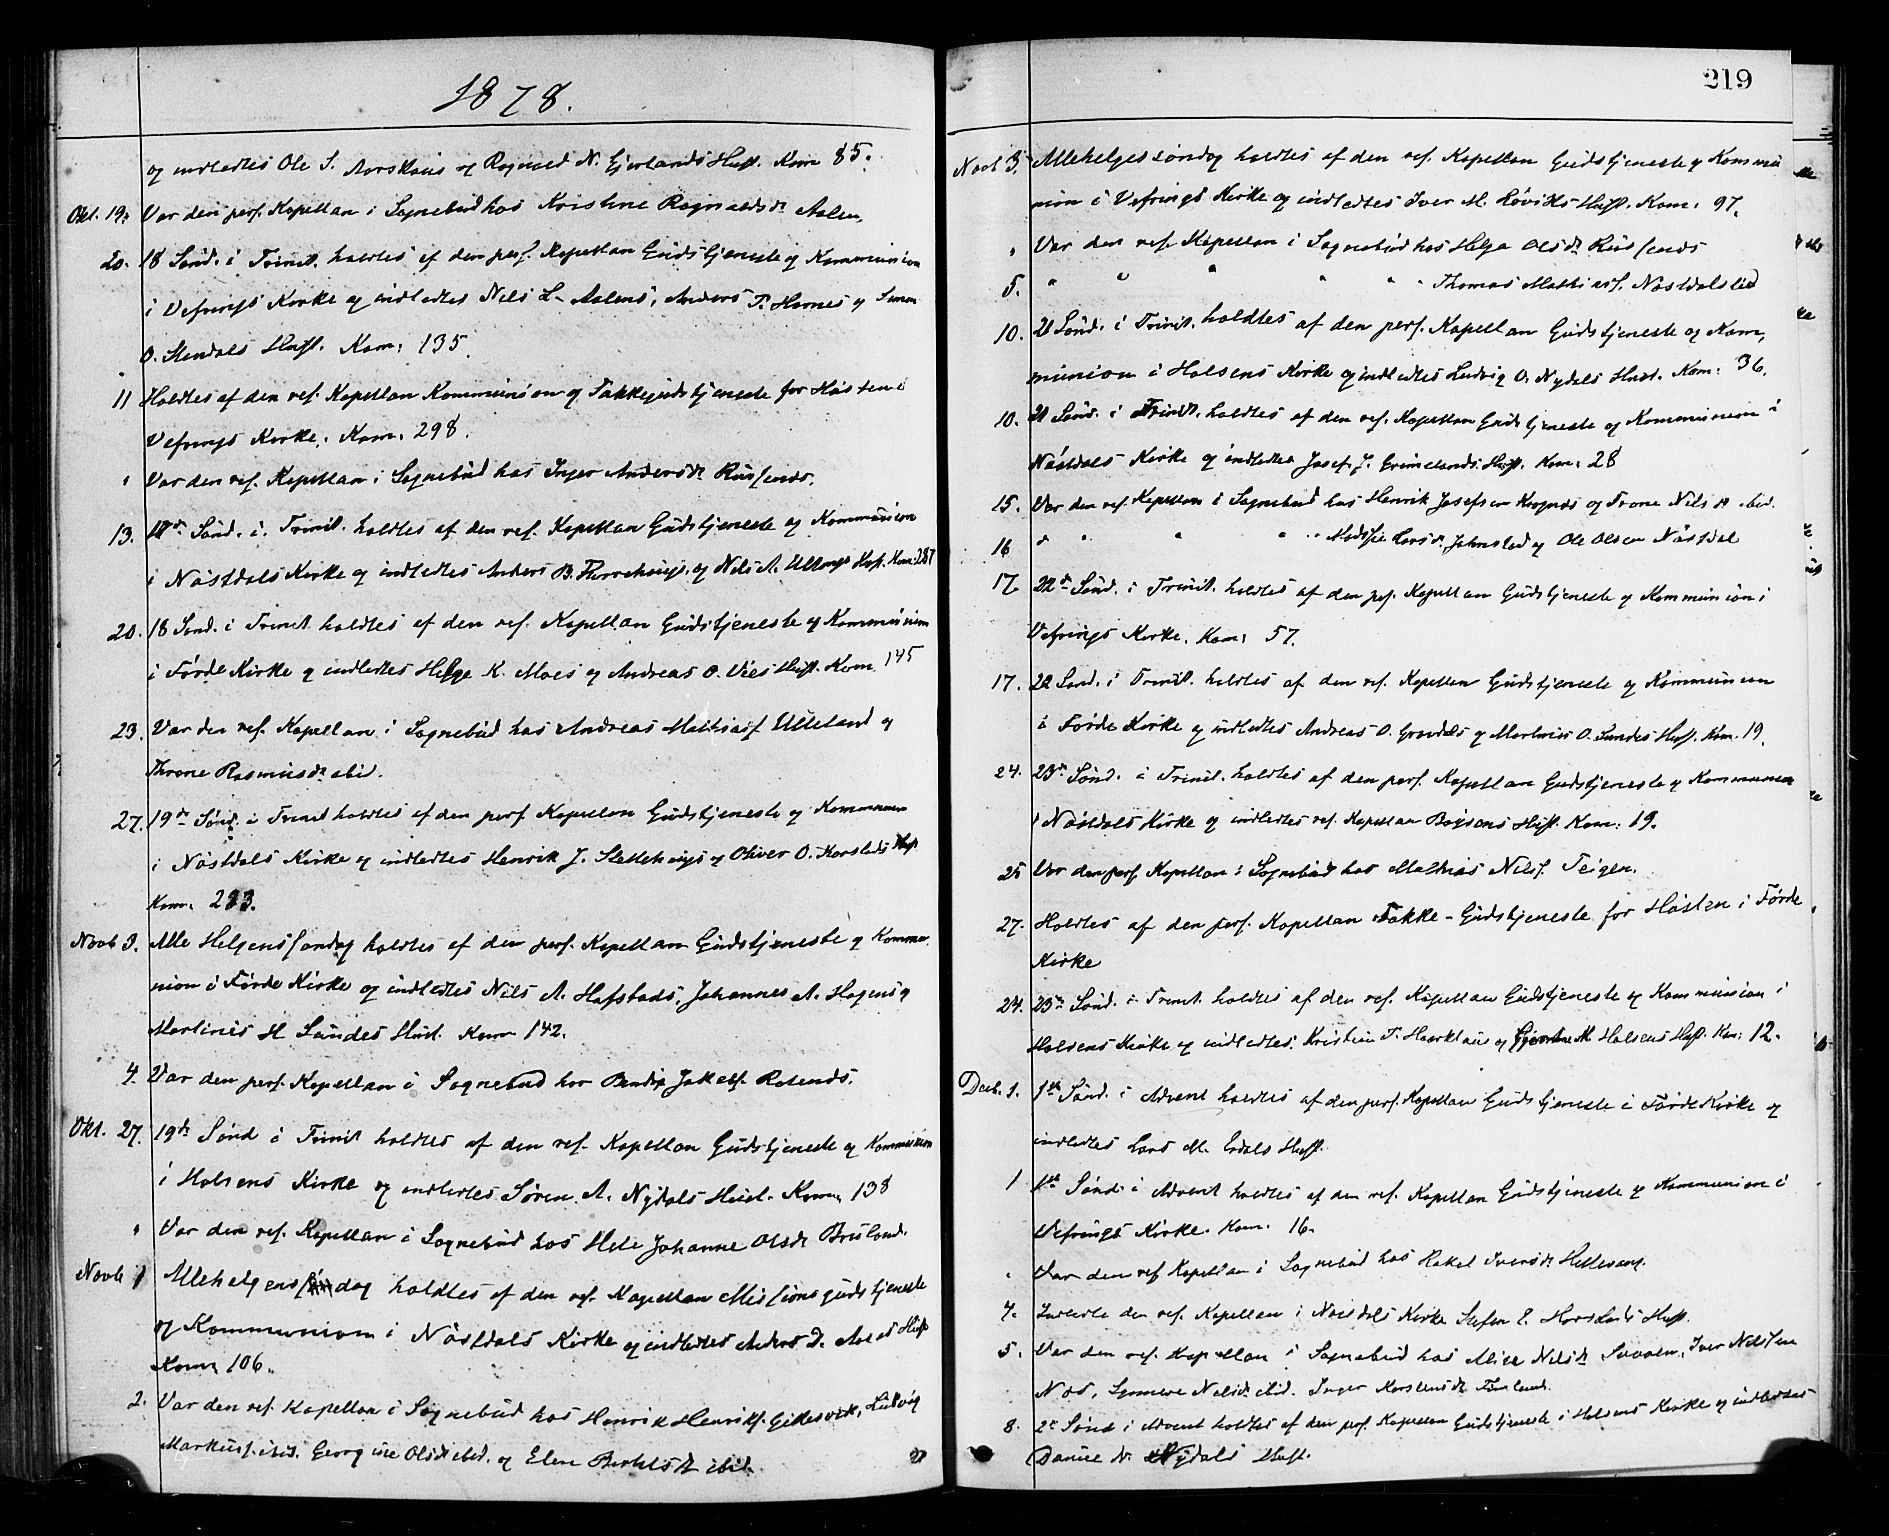 1878.
og indledtes Ole S. Aorskaus og Rognald N. Gjerlands Hust. Kom 85.
Okt. 19. Var den pers. Kapellan i Sognebud hos Kristine Rognaldsdr Aalen.
20. 18 Sönd. i Trinit. holdtes af den pers. Kapellan Gudstjeneste og Kommunion
i Vefrings Kirke og indledtes Nils L. Aalens, Anders T. Hornes og Simon
O. Stendals Hust. Kom: 135
11 Holdtes af den res. Kapellan Kommunion og Takkegudstjeneste for Hösten i
Vefrings Kirke. Kom. 298.
" Var den res. Kapellan i Sognebud hos Inger Andersdr Russenes.
13. 17de Sönd. i. Trinit. holdtes af den res. Kapellan Gudstjeneste og Kommunion
i Nöstdals Kirke og indledtes Anders B. og Nils A. Hust. Kom: 287
20. 18 Sönd. i Trinit holdtes af den res. Kapellan Gudstjeneste og Kommunion
i Förde Kirke og indledtes Helge K. Moes og Andreas O. Vies Hust. Kom 145
23. Var den res. Kapellan i Sognebud hos Andreas Mathiass Ulleland og
Throne Rasmusdr ibid.
27. 19de Sönd. i Trinit holdtes af den pers Kapellan Gudstjeneste og Kommunion
i Nöstdals Kirke og indledtes Henrik J. Stettehaugs og Oliver O. Horsteds Hust
Kom. 223.
Novb 3. Alle Helgens söndag holdtes af den pers. Kapellan Gudstjeneste og Kommu
nion i Förde Kirke og indledtes Nils A. Hafstads, Johannes A. Hagens og
Martinus H Sundes Hust. Kom 142.
4. Var den pers. Kapellan i Sognebud hos Bendix Jakobs. Rotends.
Okt. 27. 19de Sönd i Trinit holdtes af den res. Kapellan Gudstjeneste og Kommunion
i Holsens Kirke og indledtes Sören A. Nydals Hust. Kom. 138
" Var den res. Kapellan i Sognebud hos Johanne Olsdr Brulund.
Novb 1 Allehelgens dag holdtes af den res. Kapellan Missionsgudstjeneste
og Kommunion i Nöstdals Kirke og indledtes Anders D. Aases Hust
Kom 106.
2. Var den res. Kapellan i Sognebud hos Henrik Henriks. Gjelesvik, Ludvig
Markuss. ibid. Georgine Olsdr ibid. og Elen Bertelsdr ibid.
219
Novb 3. Allehelgessöndag holdtes af den res. Kapellan Gudstjeneste og Kommu
nion i Vefrings Kirke og indledtes Iver M. Lövikes Hust. Kom. 97.
" Var den res. Kapellan i Sognebud hos Helga Olsdr Russenes
5. " " " " " " Thomas Mathiass. Nöstdalslid
10. 21 Sönd. i Trinit. holdtes af den pers. Kapellan Gudstjeneste og Kom,
munion i Holsens Kirke og indledtes Ludvig O. Nydals Hust. Kom: 36.
10. 21 Sönd. i Trinit. holdtes af den res. Kapellan Gudstjeneste og Kommunion i
Nöstdals Kirke og indledtes Josef J. Grimelands Hust. Kom: 28
15. Var den res. Kapellan i Sognebud hos Henrik Josefsen og Trone Nilsdr ibid.
16 " " " " " Larsdr. Jahnstad og Ole Olsen Nöstdal
17. 22de Sönd. i Trinit. holdtes af den pers. Kapellan Gudstjeneste og Kommunion i
Vefrings Kirke. Kom: 57.
17. 22 Sönd. i Trinit. holdtes af den res. Kapellan Gudstjeneste og Kommunion
i Förde Kirke og indledtes Andreas O. Gravdals og Martinus O. Sundes Hust. Kom. 19.
24. 23de Sönd. i Trinit. holdtes af den pers. Kapellan Gudstjeneste og Kommunion
i Nöstdals Kirke og indledtes res. Kapellan Boysens Hust. Kom: 19.
25 Var den pers. Kapellan i Sognebud hos Mathias Nilss. Teigen.
27. Holdtes af den pers. Kapellan Takke-Gudstjeneste for Hösten i Förde
Kirke
24. 23de Sönd. i Trinit. holdtes af den res. Kapellan Gudstjeneste og Kommunion i
Holsens Kirke og indledtes Kristian T. og M Holsens Hust. Kom: 12.
Decb. 1. 1ste Sönd. i Advent holdtes af den pers. Kapellan Gudstjeneste i Förde Kirke og
indledtes Lars M. Erdals Hust.
1 1ste Sönd. i Advent holdtes af den res. Kapellan Gudstjeneste og Kommunion i
Vefrings Kirke. Kom. 16.
" Var den res Kapellan i Sognebud hos Rakel Iversdr
4. den res. Kapellan i Nöstdals Kirke Stefen E. Horstads Hust.
5. Var den res. Kapellan i Sognebud hos Alise Nilsdr , Iver Nilssen
Nös, Nilsdr ibid. Inger Karstensdr
8. 2de Sönd i Advent holdtes af den pers. Kapellan Gudstjeneste i Holsens Kirke og indledtes
Daniel N. Nydals Hust.